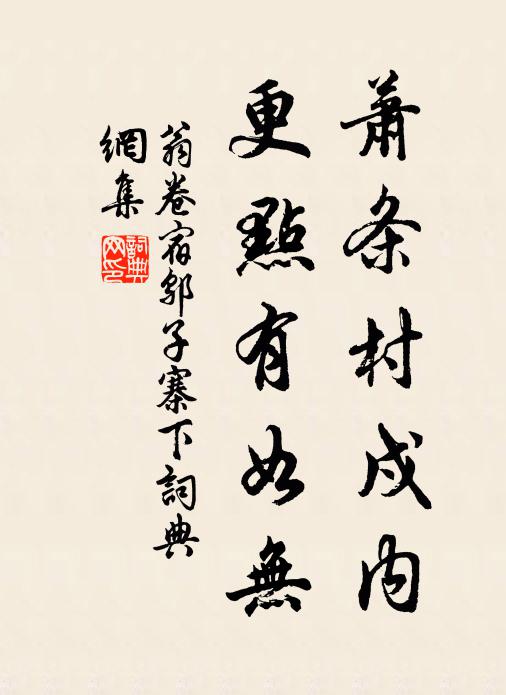 蕭条村戍内
更點有如無
翁卷宿鄔子寨下詞典
網集
詞典網印